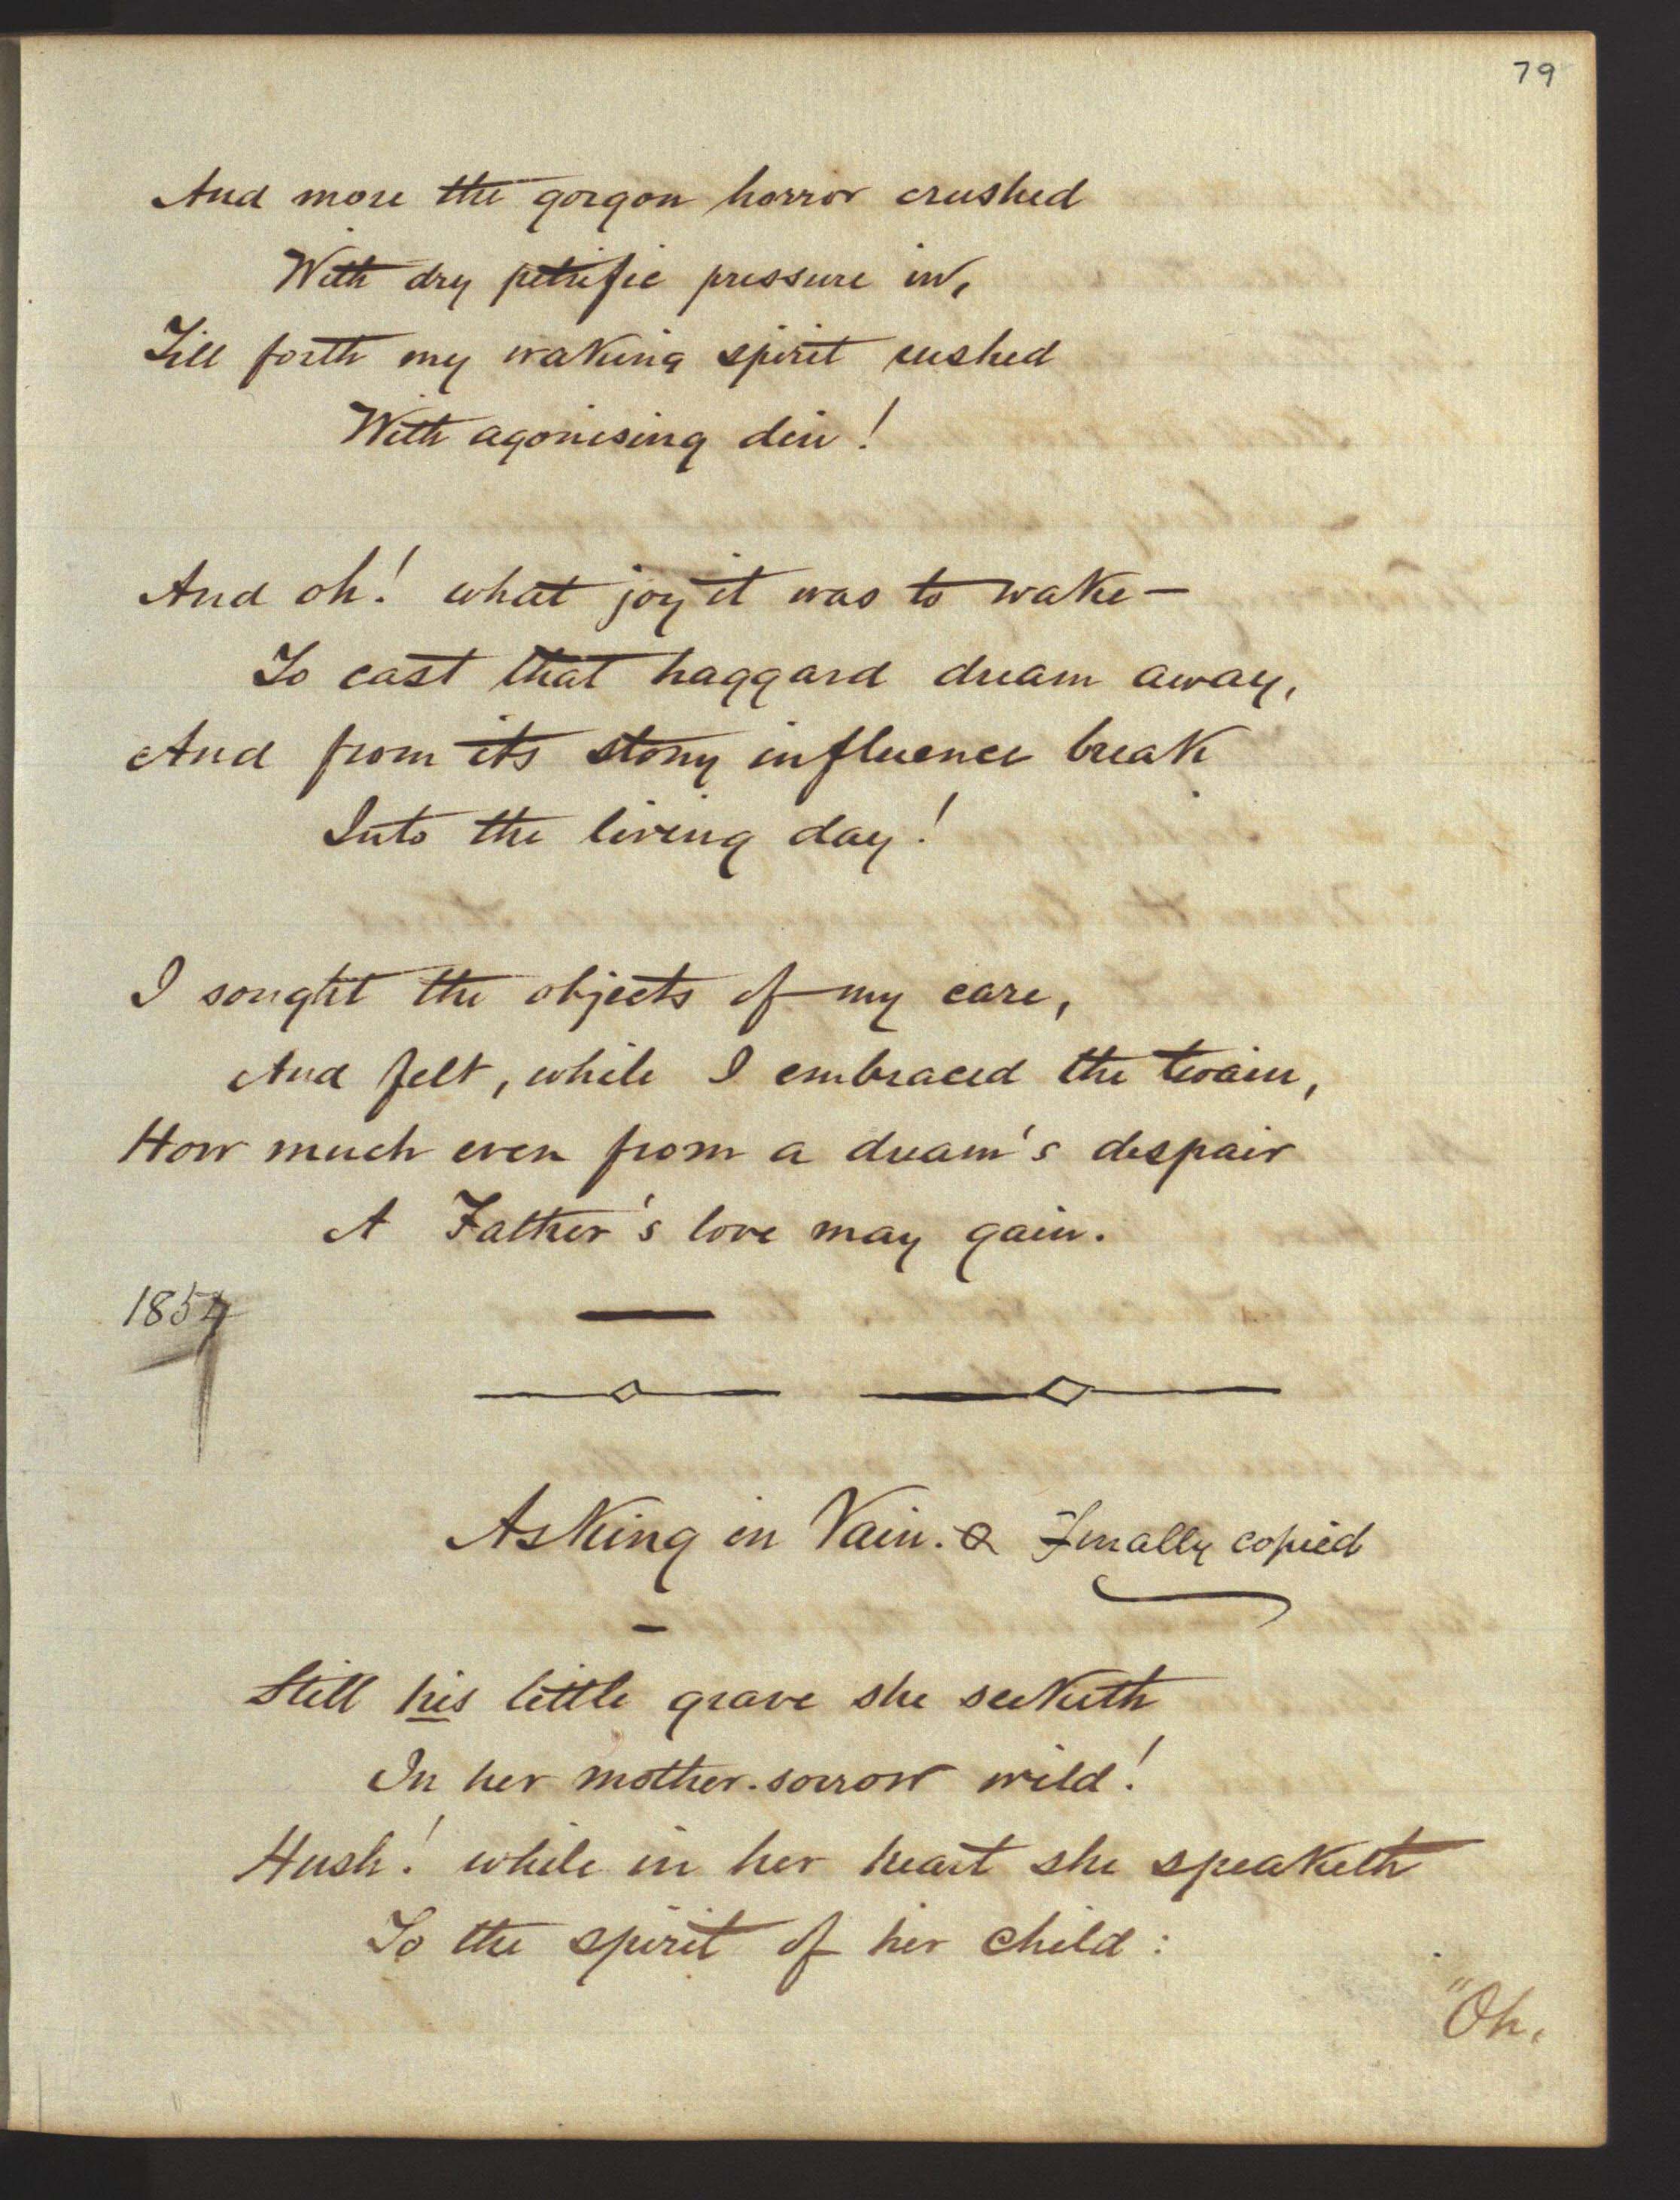 79
And more the gorgon horror crushed
With dry petrific pressure in,
Till forth my waking spirit rushed
With agonising din!
And oh! what joy it was to wake—
To cast that haggard dream away,
And from its stony influence break
Into the living day!
I sought the objects of my care,
And felt, while I embraced the twain,
How much even from a dream's despair
A Father's love may gain.
1854
Asking in Vain. Finally copied
Still his little grave she seeketh
In her mother-sorrow wild!
Hush! while in her heart she speaketh
To the spirit of her child:
"Oh,